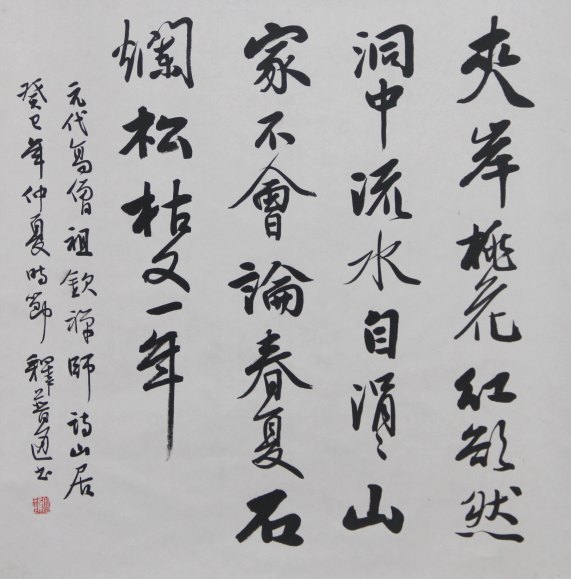 夾岸桃花紅欲然
洞中流水自涓〻山
家不會論春夏石
爛松枯又一年
元代高僧祖欽禪師詩山居
癸巳年仲夏時節 釋普书